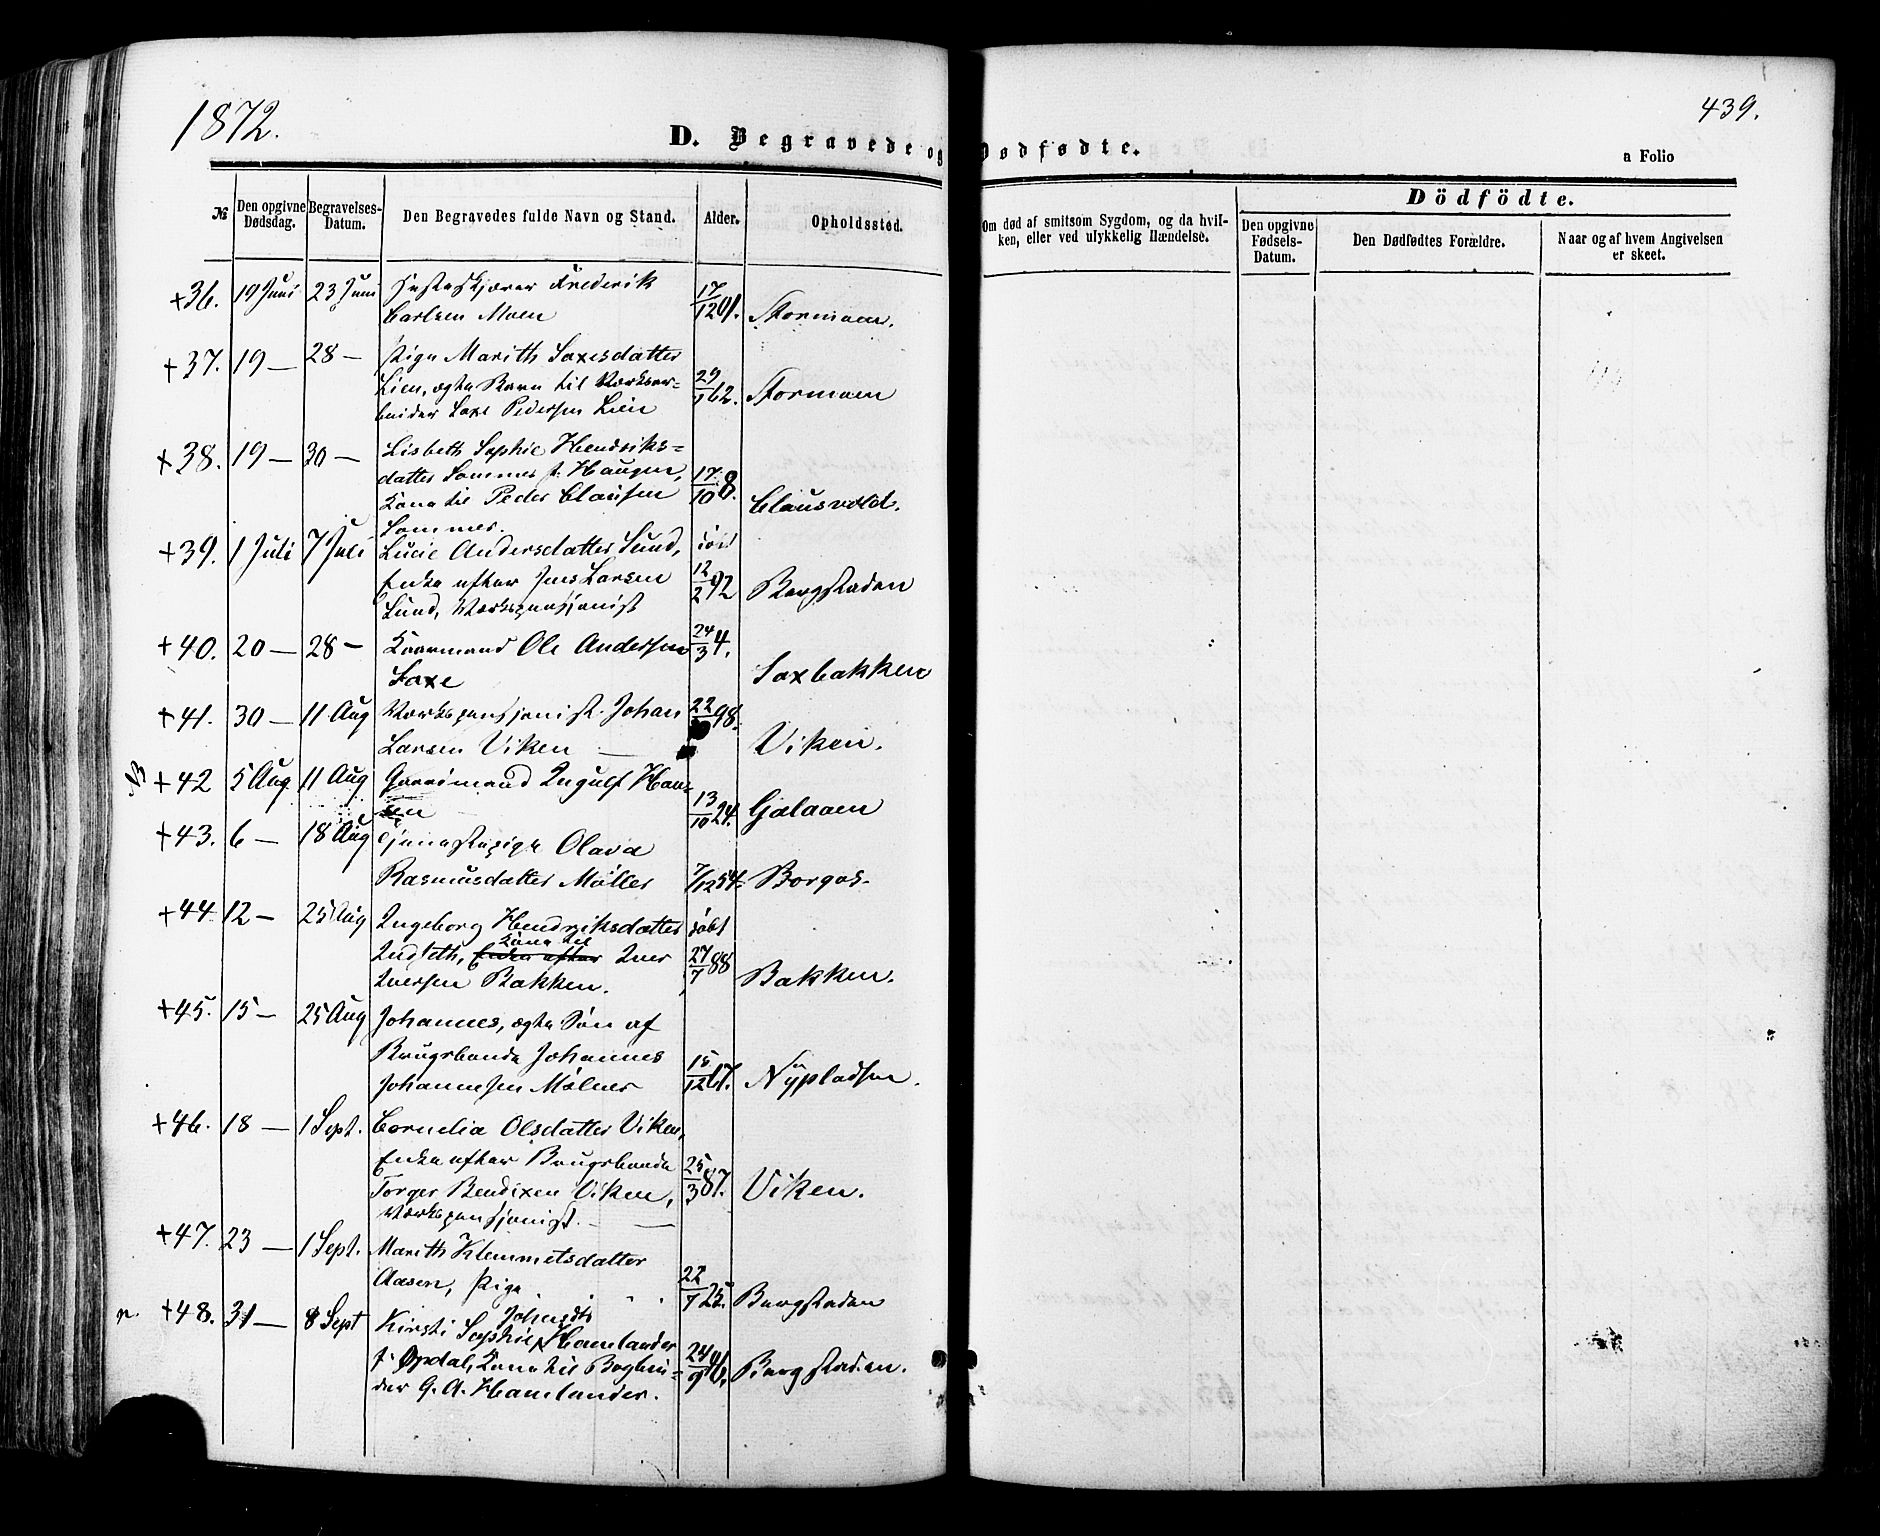 1872.
439.
D. Begravede og Dødfødte.
a Folio
Dödfödte.
№ Den opgivne Dødsdag. Begravelses-Datum. Den Begravedes fulde Navn og Stand. Alder. Opholdssted. Om død af smitsom Sygdom, og da hvilken, eller ved ulykkelig Hændelse. Den opgivne Fødsels-Datum. Den Dødfødtes Forældre. Naar og af hvem Angivelsen er skeet.
+36. 19 Juni 23 Juni Frederik
Carlsen Moen 17/12 01. Stormoen.
+37. 19 — 28 — Pige Marith Saxesdatter
Lien, ægte Barn til Værksar-
beider Saxe Pedersen Lien 29/1 62. Stormoen
+38. 19 — 30 — Lisbeth Sophie Hendriks=
datter Sommer f. Haugen,
Kone til Peder Clausen
Sommer. 17/10 8. Clausvold.
+39. 1 Juli 7 Juli Lucie Andersdatter Lund,
Enke efter Jens Larsen
Lund, Værkspensjonist døbt 12/2 92 Bergstaden
+40. 20 — 28 — Kaarmand Ole Andersen
Saxe 24/3 4. Saxbakken
+41. 30 — 11 Aug Værkspensjonist Johan
Larsen Viken — 22 98. Viken.
+42 5 Aug 11 Aug Gaardmand Ingulf Han-
sen 13/10 24. Galaaen
+43. 6 — 18 Aug Tjenestepige Olava
Rasmusdatter Möller 7/12 54. Borgos.
+44 12 — 25 Aug Ingeborg Hendriksdatter
Indseth, Enke efter Kone til Iver
Iversen Bakken. døbt 27/7 88 Bakken.
+45. 15 — 25 Aug Johannes, ægte Søn af
Brugsbonde Johannes
Johannesen Mølner 15/12 67. Nÿpladsen.
+46. 18 — 1 Sept. Cornelia Olsdatter Viken,
Enke efter Brugsbonde
Torger Bendixen Viken,
Værkspensjonist. — 25/3 87. Viken.
+47. 23 — 1 Sept. Marith Klemmetsdatter
Aasen, Pige. 22/7 25. Bergstaden
n. +48. 31 — 8 Sept Kirsti Sophie Johnsdtr Hamlander
f. Opdal, Kone til Bogbin-
der G. A. Hamlander. 24/9 96. Bergstaden.